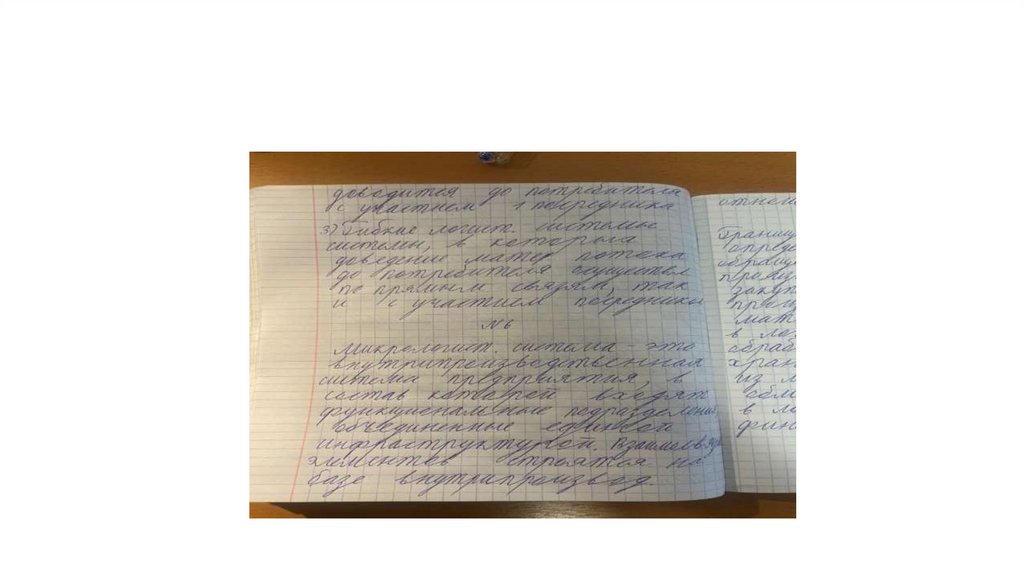 доводится до потребителя
с участием 1 посредника
3) Гибкие логист. системы
системы, в которых
доведение матер потока
до потребителя осуществл
по прямым связям, так
и с участием посредники
№6
Микрологист. система - это
внутрипроизводственная
система предприятия, в
состав которой входят
функциональные подразделения,
объединенные единой
инфраструктурой. Взаимосвязи
элементов строятся на
базе внутрипроизвод.
отноше
Границ
опреде
обращ
произв
закуп
матe
в ло
обраб
хран
из л
обме
в ло
фин